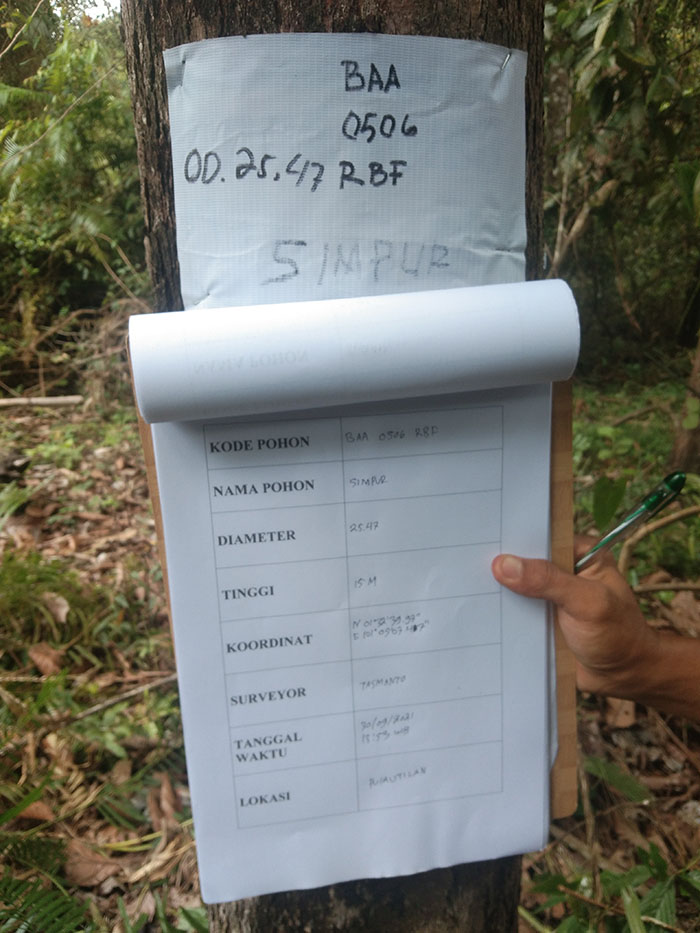 BAA
0506
OD. 25,47 RBF
SIMPUR
NAMA POHON
KODE POHON BAA 0506 RBF
NAMA POHON SIMPUR
DIAMETER 25.47
TINGGI 15 M
KOORDINAT
SURVEYOR TASMANTO
TANGGAL 30/09/2021
WAKTU 15:53 WIB
LOKASI